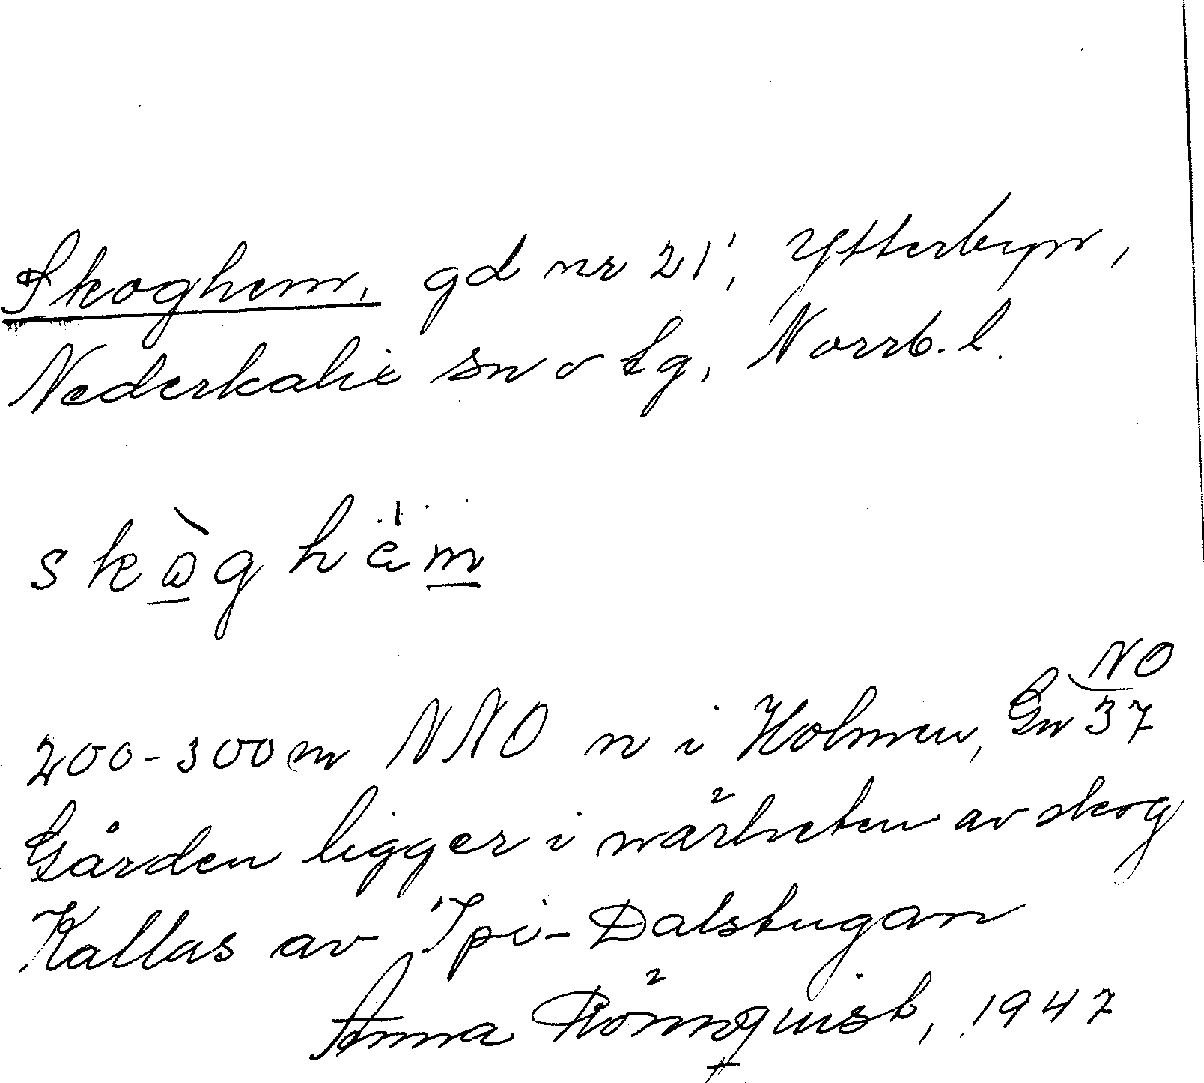 Skoghem, gd nr 21, Ytterbyn,
Nederkalix sn o tg, Norrb. l.
skò̱ghëm̱
200-300 m NNO n i Holmen, Gn NO/37
Gården ligger i närheten av skog
Kallas av Ipi-Dalstugan
Anna Rönnquist, 1947